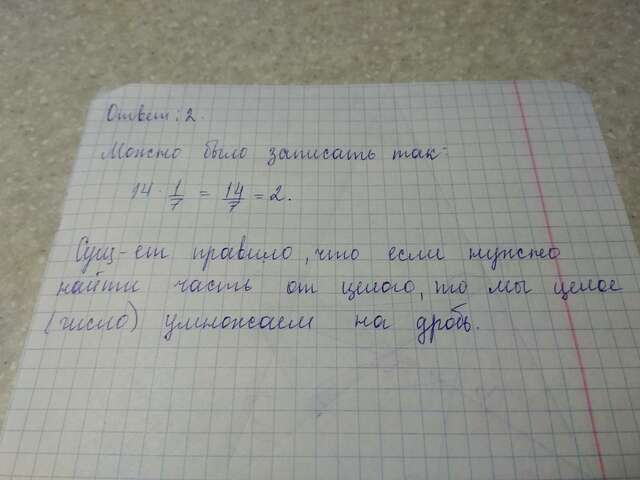 Ответ: 2.
Можно было записать так:
14 · 1/7 = 14/7 = 2.
Сущ-ет правило, что если нужно
найти часть от целого, то мы целое
(число) умножаем на дробь.